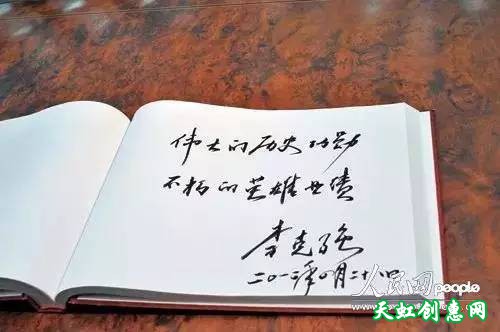 伟大的历史功勋
不朽的英雄业绩
李克强
二〇一三年 月二十
人民网 people
天虹创惠网